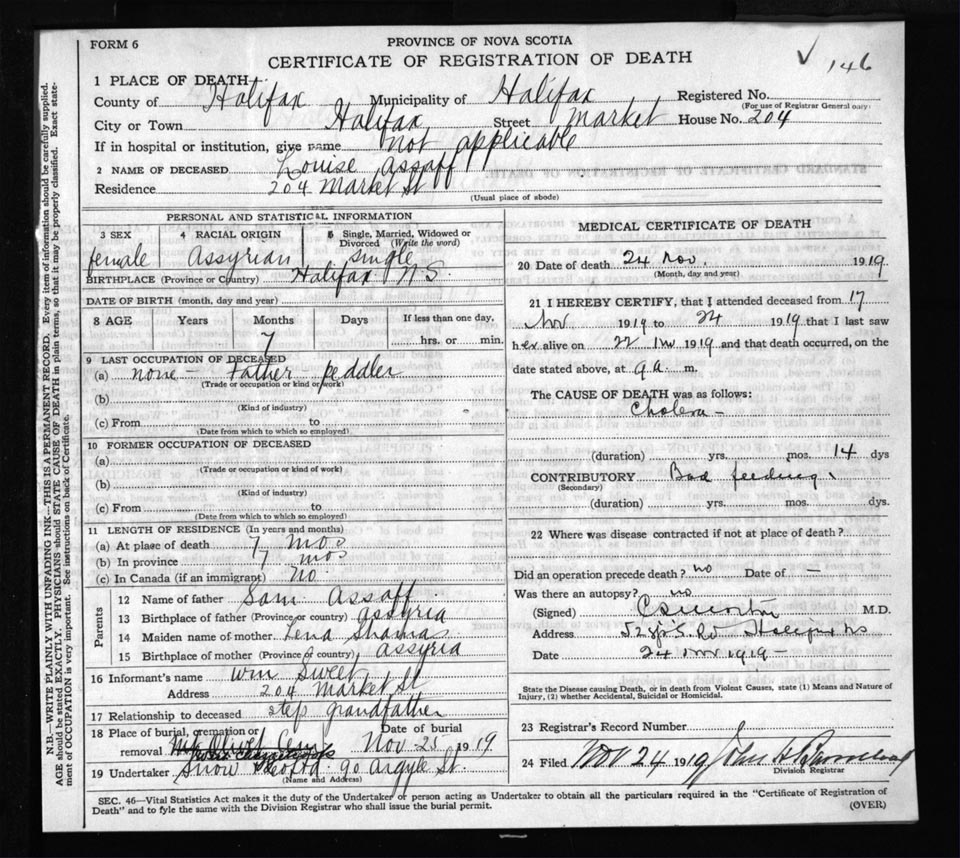 FORM 6
PROVINCE OF NOVA SCOTIA
CERTIFICATE OF REGISTRATION OF DEATH
146
1 PLACE OF DEATH—
County of Halifax Municipality of Halifax Registered No.
(For use of Registrar General only)
City or Town Halifax Street Market House No. 204
If in hospital or institution, give name not applicable
2 NAME OF DECEASED Louise Assaff
Residence 204 Market St
(Usual place of abode)
PERSONAL AND STATISTICAL INFORMATION
3 SEX 4 RACIAL ORIGIN 5 Single, Married, Widowed or Divorced (Write the word)
female Assyrian single
BIRTHPLACE (Province or Country) Halifax N.S.
DATE OF BIRTH (month, day and year)
8 AGE Years Months Days If less than one day,
7 hrs. or min.
9 LAST OCCUPATION OF DECEASED
(a) none - Father - peddler
(Trade or occupation or kind of work)
(b)
(Kind of industry)
(c) From to
(Date from which to which so employed)
10 FORMER OCCUPATION OF DECEASED
(a)
(Trade or occupation or kind of work)
(b)
(Kind of industry)
(c) From to
(Date from which to which so employed)
11 LENGTH OF RESIDENCE (In years and months)
(a) At place of death 7 mos
(b) In province 7 mos
(c) In Canada (if an immigrant) no
Parents
12 Name of father Sam Assaff
13 Birthplace of father (Province or country) Assyria
14 Maiden name of mother Lena Shamas
15 Birthplace of mother (Province or country) Assyria
16 Informant's name Wm Sweet
Address 204 Market St
17 Relationship to deceased step grandfather
18 Place of burial, cremation or removal Date of burial
Mt Olivet Cem Nov 25 1919
19 Undertaker Snow & Co Ltd 90 Argyle St.
(Name and Address)
MEDICAL CERTIFICATE OF DEATH
20 Date of death 24 Nov. 1919
(Month, day and year)
21 I HEREBY CERTIFY, that I attended deceased from 17
Nov 1919 to 24 1919 that I last saw
her alive on 22 Nov 1919 and that death occurred, on the
date stated above, at 9 a. m.
The CAUSE OF DEATH was as follows:
Cholera -
(duration) yrs. mos. 14 dys
CONTRIBUTORY Bad feeding
(Secondary)
(duration) yrs. mos. dys.
22 Where was disease contracted if not at place of death?
Did an operation precede death? no Date of —
Was there an autopsy? no
(Signed) M.D.
Address Halifax NS
Date 24 Nov 1919 -
State the Disease causing Death, or in death from Violent Causes, state (1) Means and Nature of
Injury, (2) whether Accidental, Suicidal or Homicidal.
23 Registrar's Record Number
24 Filed Nov 24 1919 John
Division Registrar
SEC. 46—Vital Statistics Act makes it the duty of the Undertaker or person acting as Undertaker to obtain all the particulars required in the "Certificate of Registration of
Death" and to fyle the same with the Division Registrar who shall issue the burial permit. (OVER)
N.B.—WRITE PLAINLY WITH UNFADING INK—THIS IS A PERMANENT RECORD. Every item of information should be carefully supplied.
AGE should be stated EXACTLY. PHYSICIANS should STATE CAUSE OF DEATH in plain terms, so that it may be properly classified. Exact state-
ment of OCCUPATION is very important. See instructions on back of Certificate.